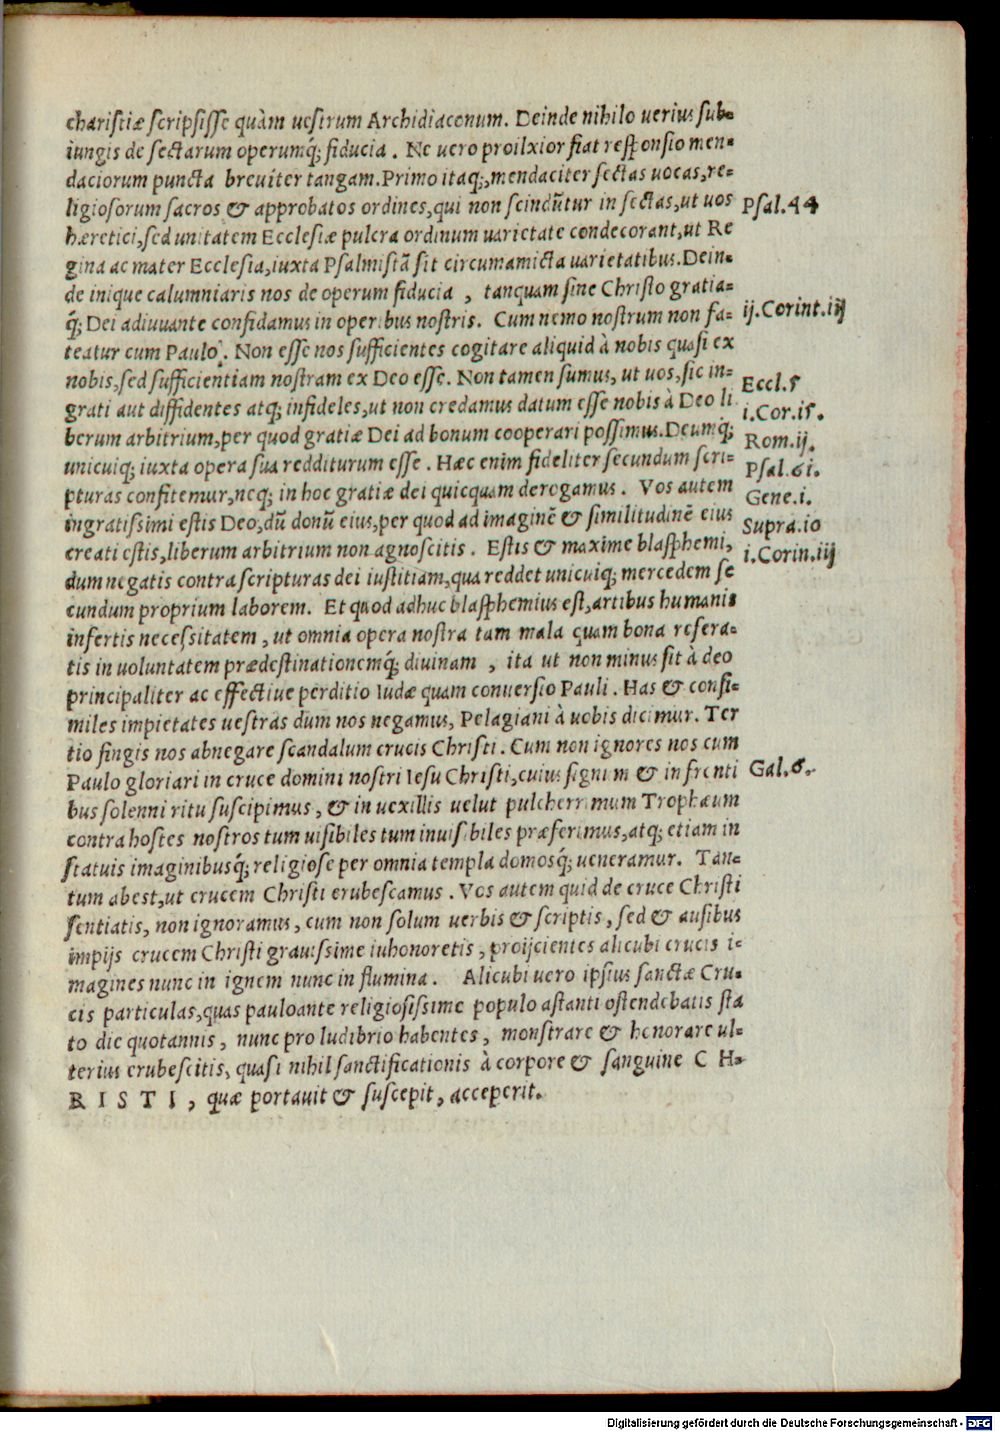 charistiæ scripsisse quàm uestrum Archidiaconum. Deinde nihilo uerius sub-
iungis de sectarum operumq́; fiducia. Ne uero proilxior fiat responsio men-
daciorum puncta breuiter tangam. Primo itaq;, mendaciter sectas uocas, re-
ligiosorum sacros & approbatos ordines, qui non scindũtur in sectas, ut uos
hæretici, sed unitatem Ecclesiæ pulcra ordinum uarietate condecorant, ut Re
gina ac mater Ecclesia, iuxta Psalmistã sit circumamicta uarietatibus. Dein-
de inique calumniaris nos de operum fiducia, tanquam sine Christo gratia-
q́; Dei adiuuante confidamus in operibus nostris. Cum nemo nostrum non fa-
teatur cum Paulo. Non esse nos sufficientes cogitare aliquid à nobis quasi ex
nobis, sed sufficientiam nostram ex Deo esse. Non tamen sumus, ut uos, sic in-
grati aut diffidentes atq; infideles, ut non credamus datum esse nobis à Deo li
berum arbitrium, per quod gratiæ Dei ad bonum cooperari possimus. Deumq́;
unicuiq; iuxta opera sua redditurum esse. Hæc enim fideliter secundum scri-
pturas confitemur, neq; in hoc gratiæ dei quicquam derogamus. Vos autem
ingratissimi estis Deo, dũ donũ eius, per quod ad imaginẽ & similitudinẽ eius
creati estis, liberum arbitrium non agnoscitis. Estis & maxime blasphemi,
dum negatis contra scripturas dei iustitiam, qua reddet unicuiq; mercedem se
cundum proprium laborem. Et quod adhuc blasphemius est, artibus humanis
infertis necessitatem, ut omnia opera nostra tam mala quam bona refera-
tis in uoluntatem prædestinationemq́; diuinam, ita ut non minus sit à deo
principaliter ac effectiue perditio Iudæ quam conuersio Pauli. Has & consi-
miles impietates uestras dum nos negamus, Pelagiani à uobis dicimur. Ter
tio fingis nos abnegare scandalum crucis Christi. Cum non ignores nos cum
Paulo gloriari in cruce domini nostri Iesu Christi, cuius signum & in fronti
bus solenni ritu suscipimus, & in uexillis uelut pulcherrimum Trophæum
contra hostes nostros tum uisibiles tum inuisibiles præferimus, atq; etiam in
statuis imaginibusq́; religiose per omnia templa domosq́; ueneramur. Tan-
tum abest, ut crucem Christi erubescamus. Vos autem quid de cruce Christi
sentiatis, non ignoramus, cum non solum uerbis & scriptis, sed & ausibus
impijs crucem Christi grauissime inhonoretis, proijcientes alicubi crucis i-
magines nunc in ignem nunc in flumina. Alicubi uero ipsius sanctæ Cru-
cis particulas, quas pauloante religiosissime populo astanti ostendebatis sta
to die quotannis, nunc pro ludibrio habentes, monstrare & honorare ul-
terius erubescitis, quasi nihil sanctificationis à corpore & sanguine C H-
R I S T I, quæ portauit & suscepit, acceperit.
Psal.44
ij.Corint.iij
Eccl.5
i.Cor.15.
Rom.ij.
Psal.61.
Gene.i.
Supra.10
i.Corin.iij
Gal.6.
Digitalisierung gefördert durch die Deutsche Forschungsgemeinschaft - DFG